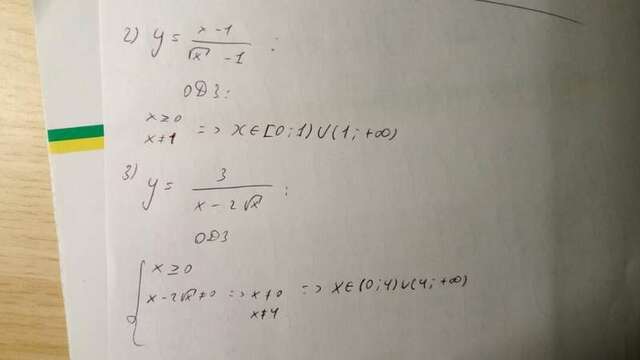 2) y = (x-1)/(√x -1) ;
ОДЗ:
x≥0
x≠1 => x∈[0;1)∪(1;+∞)
3) y = 3/(x-2√x) ;
ОДЗ
x≥0
x-2√x≠0 => x≠0 => x∈(0;4)∪(4;+∞)
x≠4